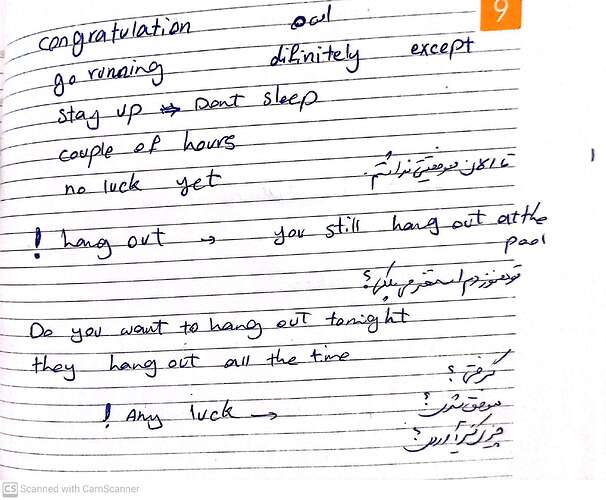 9
congratulation owl
go running difinitely except
stay up → Dont sleep
couple of hours
no luck yet تا الان موفقیتی نداشتم.
! hang out → you still hang out at the
pool
تو هنوزم استخر می‌پلکی؟
Do you want to hang out tonight
they hang out all the time
گرفتی؟
! Any luck → موفق شدی؟
چیزی گیر آوردی؟
CS Scanned with CamScanner